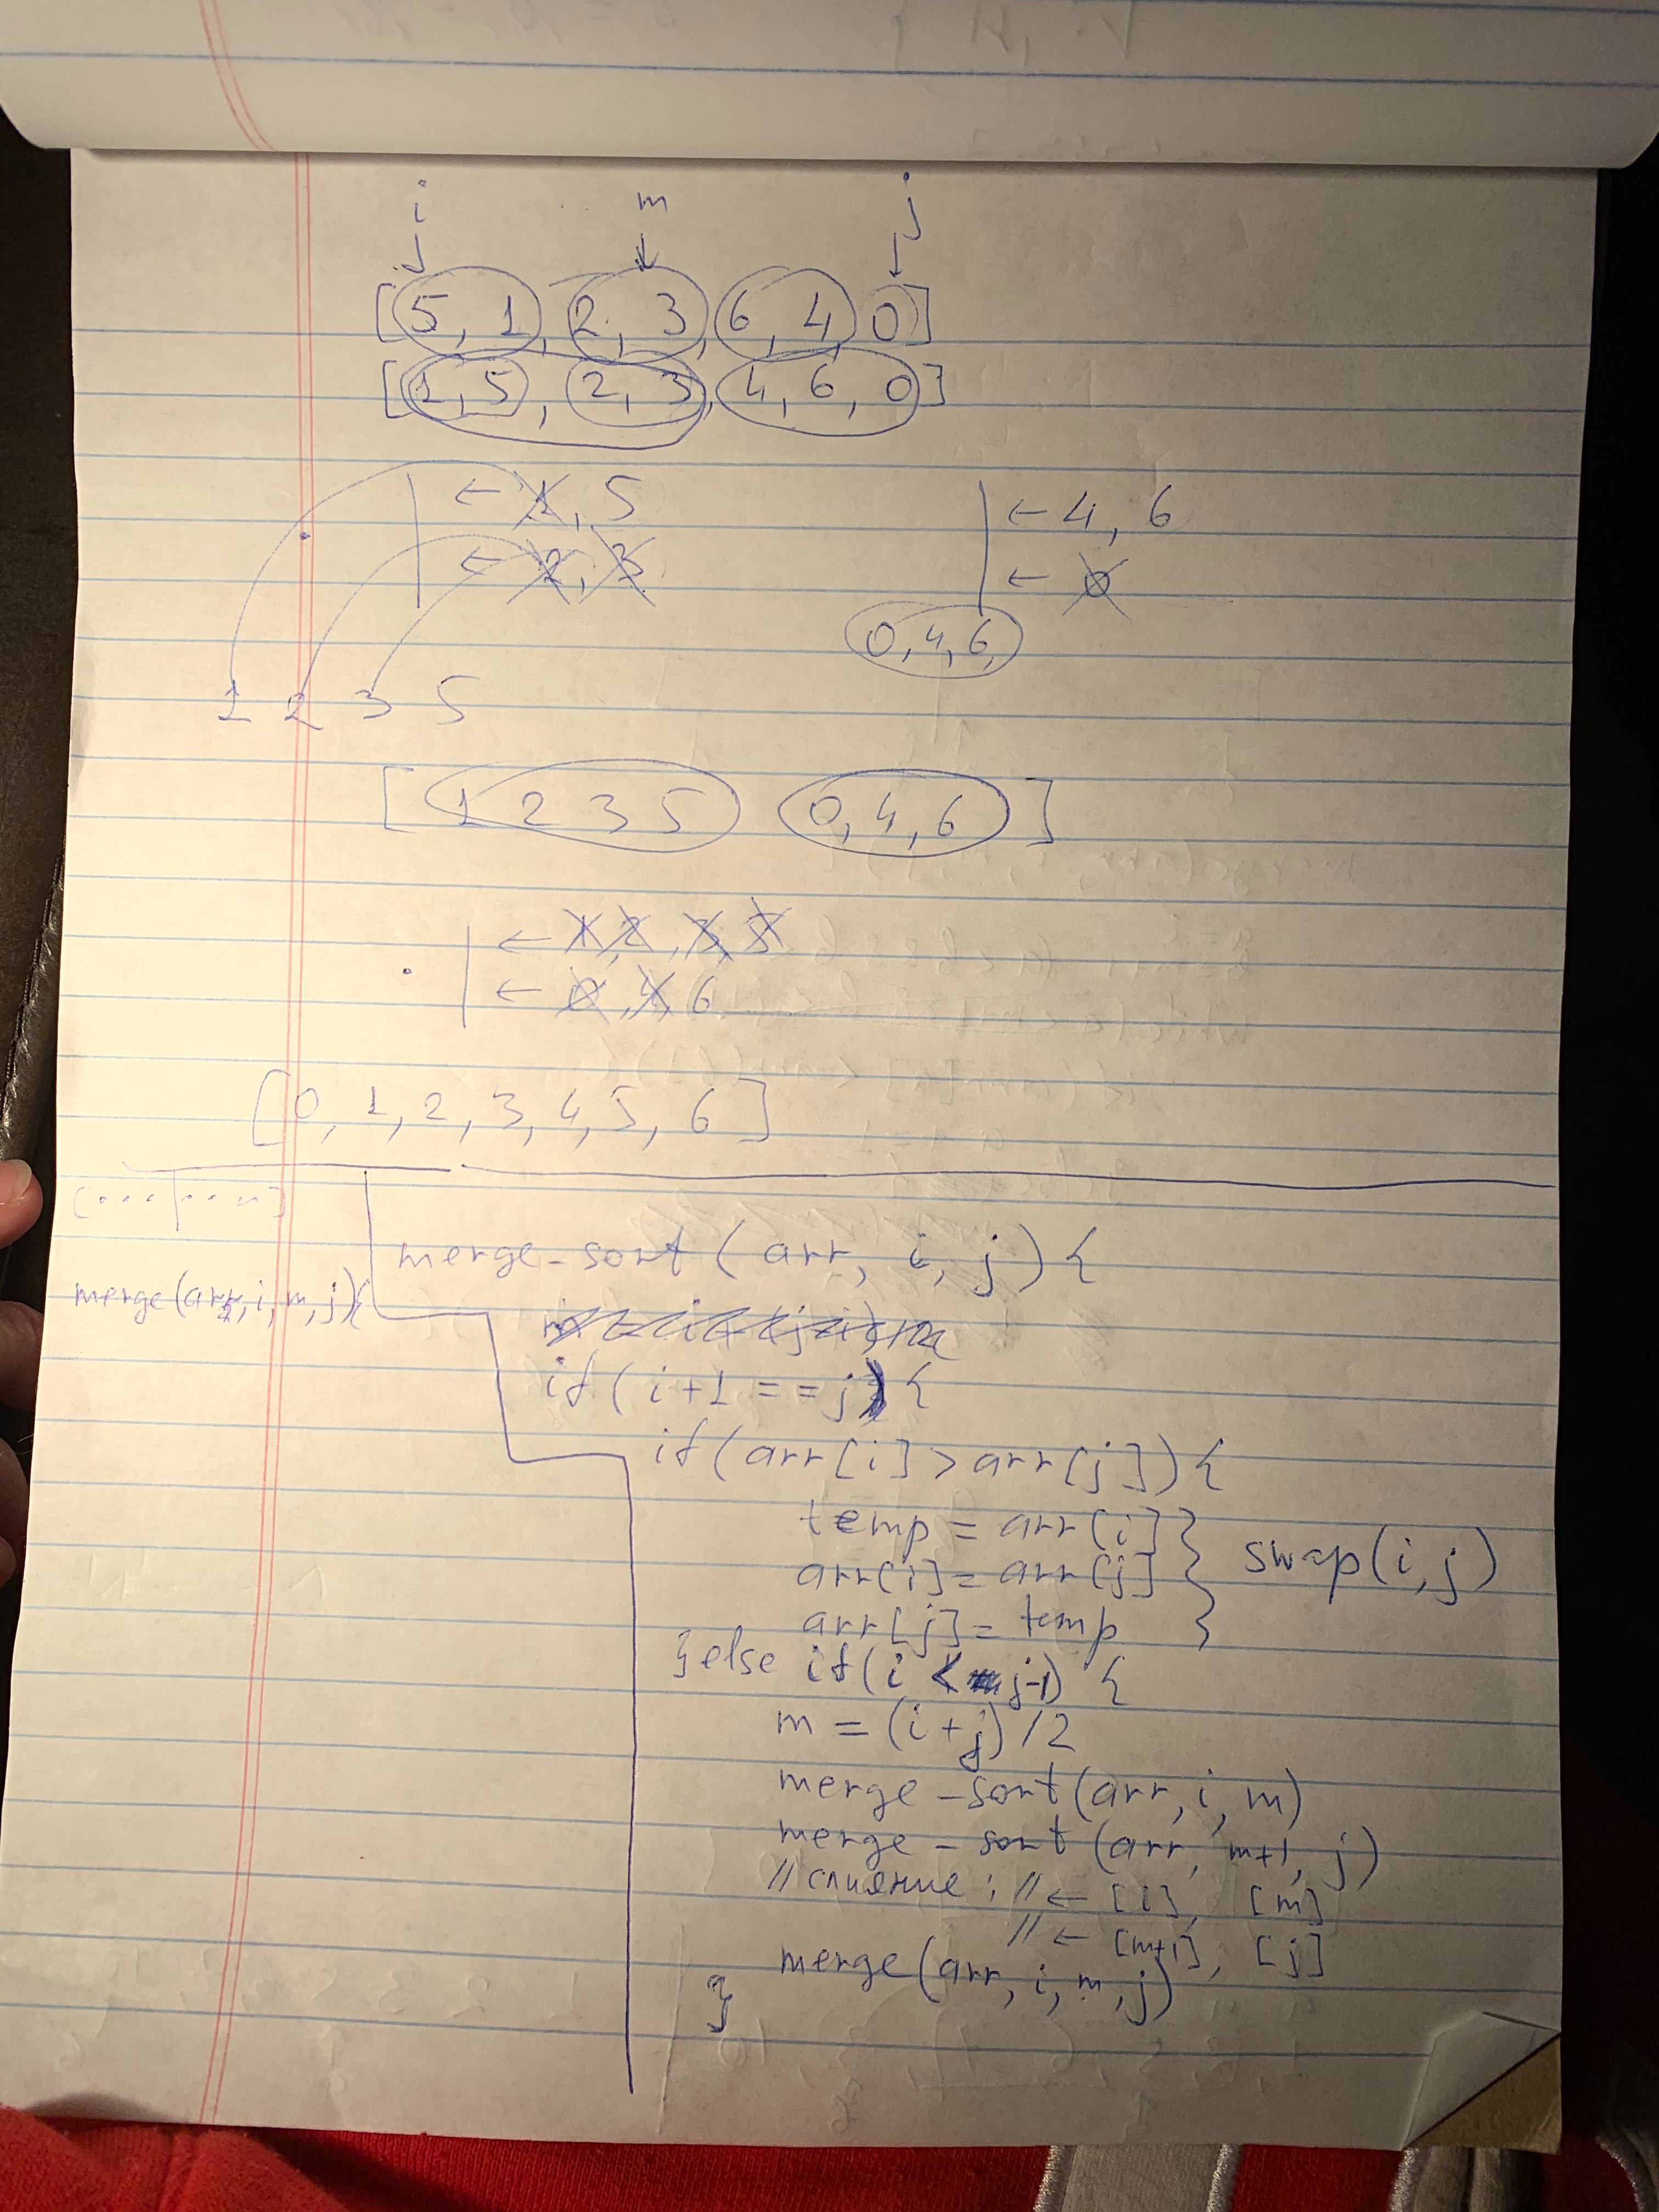 i m j
[5, 1, 2, 3, 6, 4, 0]
[1, 5, 2, 3, 4, 6, 0]
← 1, 5
← 2, 3
← 4, 6
← 0
0, 4, 6,
1 2 3 5
[1 2 3 5 0, 4, 6]
← 1, 2, 3, 5
← 0, 4, 6
[0, 1, 2, 3, 4, 5, 6]
[...|...]
merge(arr, i, m, j){
merge-sort (arr, i, j) {
if (i+1 == j) {
if (arr[i] > arr[j]) {
temp = arr[i]
arr[i] = arr[j]
arr[j] = temp
} swap(i, j)
} else if (i < j-1) {
m = (i+j)/2
merge-sort(arr, i, m)
merge-sort(arr, m+1, j)
// слияние: // ← [i], [m]
// ← [m+1], [j]
merge(arr, i, m, j)
}